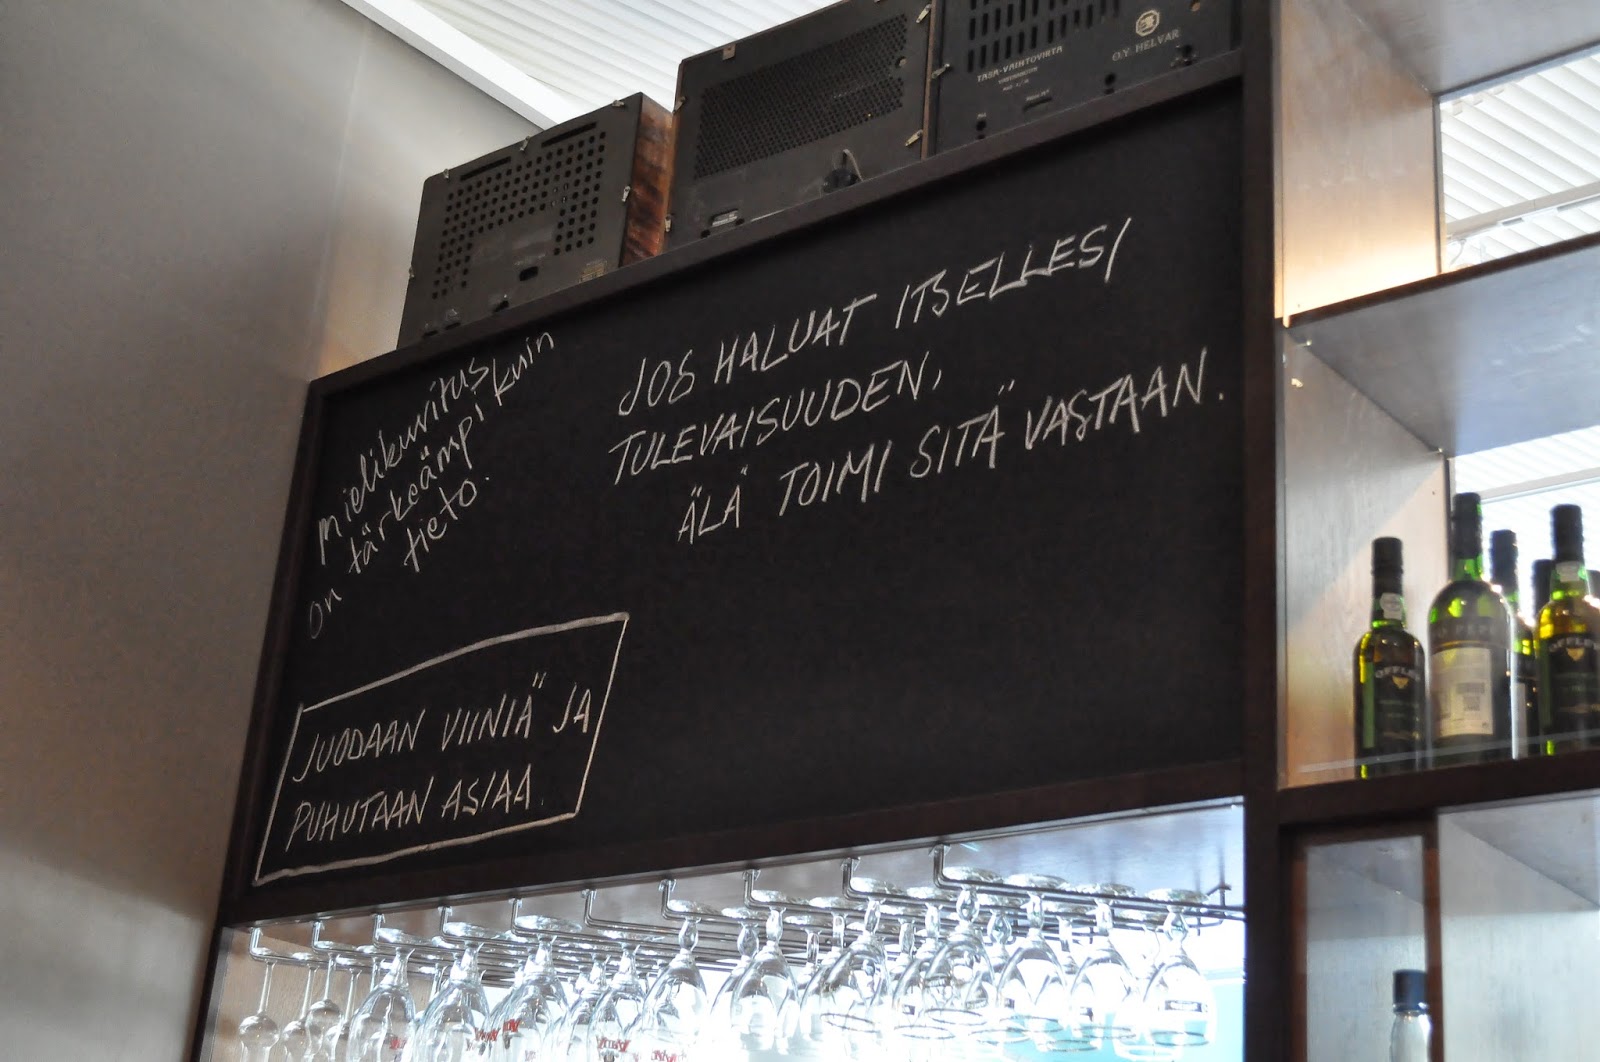 O.Y HELVAR
TASA-VAIHTOVIRTA
mielikuvitus
on tärkeämpi kuin
tieto.
JOS HALUAT ITSELLESI
TULEVAISUUDEN,
ÄLÄ TOIMI SITÄ VASTAAN.
JUODAAN VIINIÄ JA
PUHUTAAN ASIAA.
OFFLEY